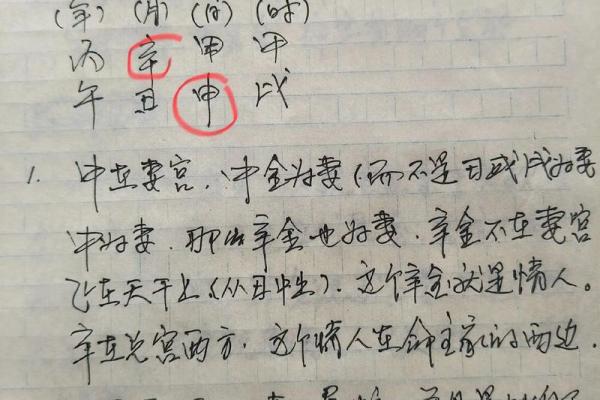 (年) (月) (日) (时)
丙 辛 甲 甲
午 丑 申 戌
1. 申在妻宫、申金为妻(而不是丑或戌为妻
申为妻、那么辛金也为妻、辛金不在妻宫
飞在天干上(从丑中出)、这个辛金就是情人。
辛在兄宫西方、这个情人在命主家的西边、